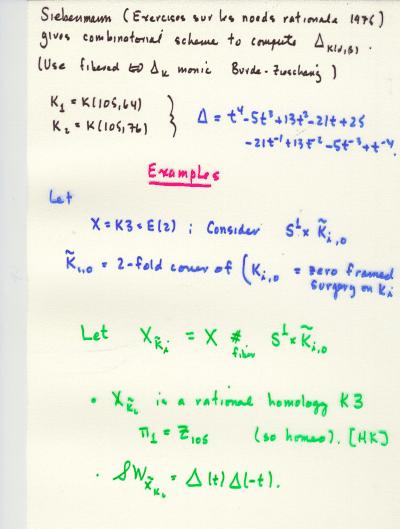 Siebenmann (Exercises sur les noeds rationals 1975)
gives combinatorial scheme to compute Δ_K(α,β).
(Use fibered ⇔ Δ_K monic Burde-Zieschang)
K₁ = K(105,64)
K₂ = K(105,76)
Δ = t⁴-5t³+13t²-21t+25
-21t⁻¹+13t⁻²-5t⁻³+t⁻⁴.
Examples
Let
X = K3 = E(2) ; Consider S¹×K̃_i,0
K̃_i,0 = 2-fold cover of (K_i,0 = zero framed
surgery on K_i
Let X_K̃_i = X #_fiber S¹×K̃_i,0
• X_K̃_i is a rational homology K3
π₁ = Z₁₀₅ (so homeo). [HK]
• SW_X̃_K_i = Δ(t)Δ(-t).